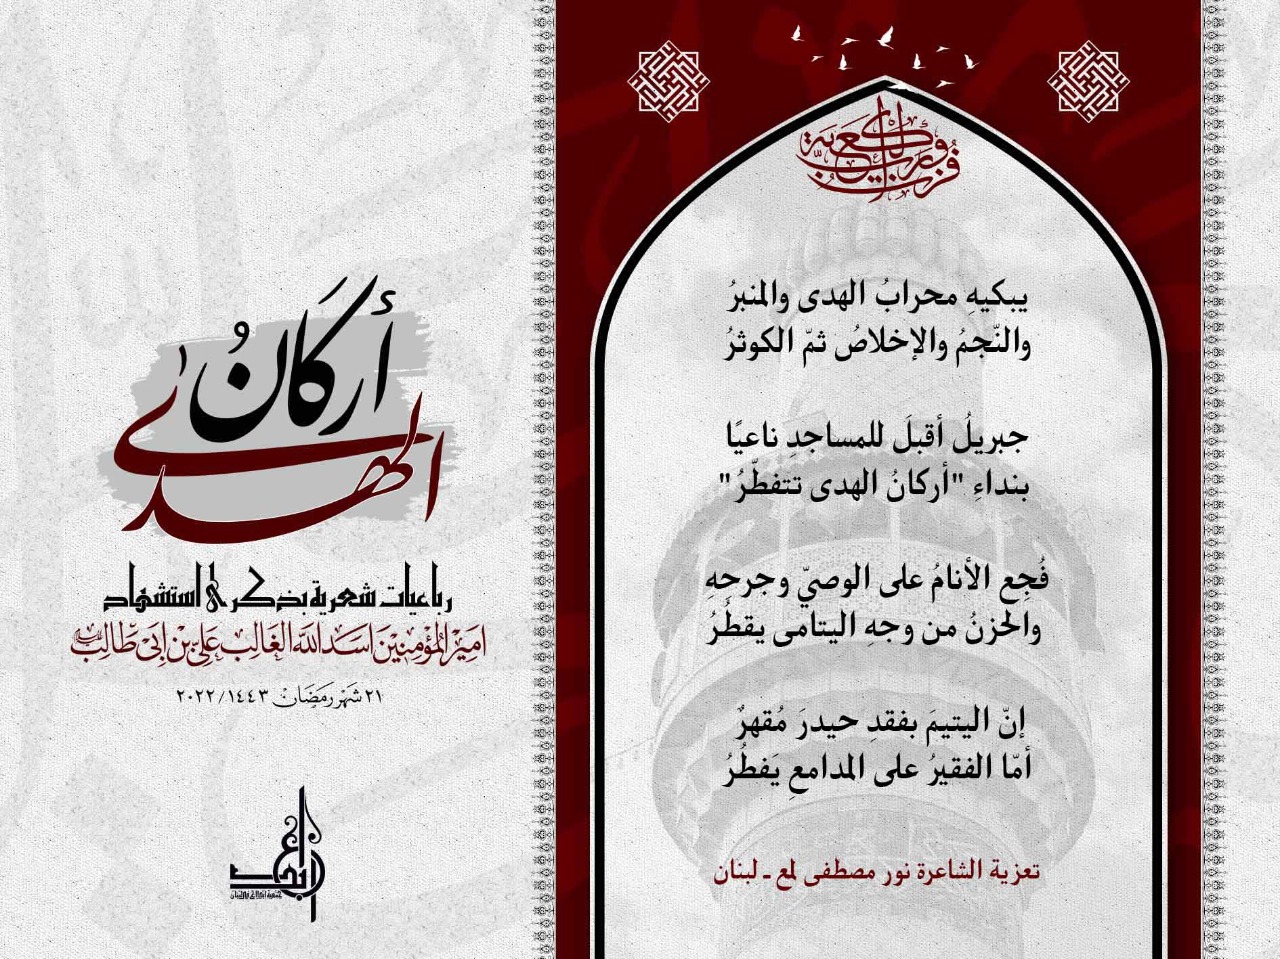 أركانُ
الهدى
رباعيات شعرية بذكرى استشهاد
امير المؤمنين اسد الله الغالب علي بن ابي طالب
٢١ شهر رمضان ٢٠٢٢/١٤٤٣
فزت ورب الكعبة
يبكيهِ محرابُ الهدى والمنبرُ
والنّجمُ والإخلاصُ ثمّ الكوثرُ
جبريلُ أقبلَ للمساجدِ ناعيًا
بنداءِ "أركانُ الهدى تتفطّرُ"
فُجِع الأنامُ على الوصيّ وجرحهِ
والحزنُ من وجهِ اليتامى يقطُرُ
إنّ اليتيمَ بفقدِ حيدرَ مُقهرٌ
أمّا الفقيرُ على المدامعِ يَفطُرُ
تعزية الشاعرة نور مصطفى لمع ـ لبنان